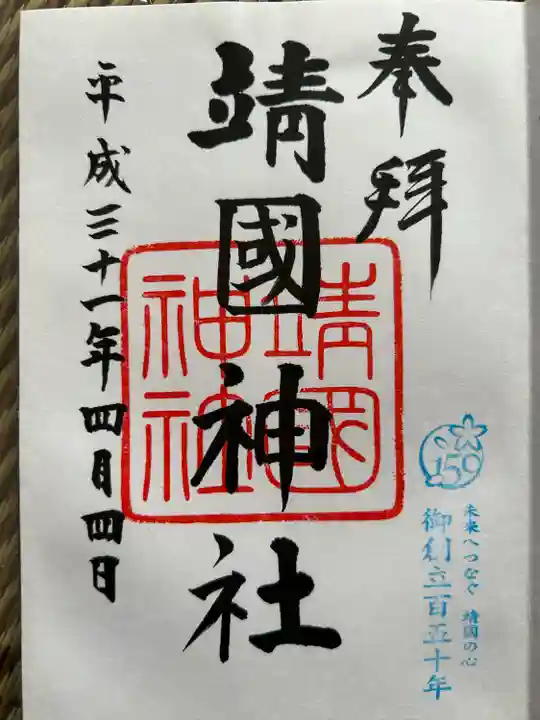 奉拝
靖國神社
靖國神社
平成三十一年四月四日
150
未来へつなぐ 靖国の心
御創立百五十年